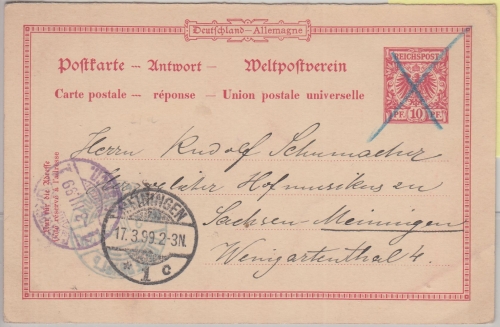 Deutschland-Allemagne
Postkarte – Antwort – Weltpostverein
Carte postale – réponse – Union postale universelle
REICHSPOST
PF. 10 PF.
Herrn Rudolf Schumacher
Hofmusikus in
Sachsen-Meiningen
Weingartenthal 4.
MEININGEN
17.3.99.2-3N.
* 1 c
Nur für die Adresse